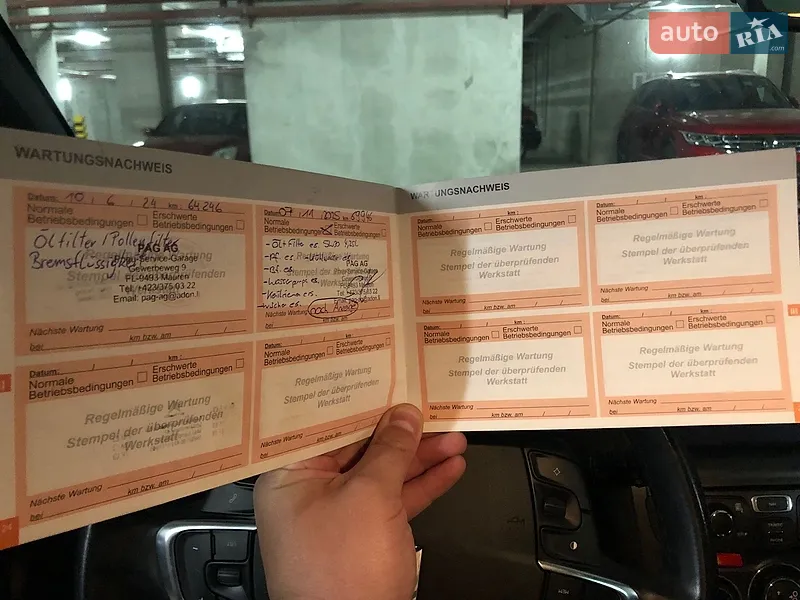 auto RIA.com
WARTUNGSNACHWEIS
Datum: 10 / 6 / 24 km 64.246
Normale Betriebsbedingungen
Erschwerte Betriebsbedingungen
Ölfilter / Pollenfilter
Bremsflüssigkeit
PAG AG
Service-Garage
Gewerbeweg 9
FL-9493 Mauren
Tel. +423 375 03 22
Email: pag-ag@adon.li
Nächste Wartung
bei km bzw. am / /
Datum: 07 / 11 / 2025 km 69946
Normale Betriebsbedingungen
Erschwerte Betriebsbedingungen
- Ölfilter es 5W30 4,25L
PAG AG
- Wasserpumpe es
- Keilriemen ers.
nach Anzeige
Nächste Wartung
bei km bzw. am / /
Datum: / / km :
Normale Betriebsbedingungen
Erschwerte Betriebsbedingungen
Regelmäßige Wartung
Stempel der überprüfenden
Werkstatt
Nächste Wartung
bei km bzw. am / /
Datum: / / km :
Normale Betriebsbedingungen
Erschwerte Betriebsbedingungen
Regelmäßige Wartung
Stempel der überprüfenden
Werkstatt
Nächste Wartung
bei km bzw. am / /
24
WARTUNGSNACHWEIS
Datum: / / km :
Normale Betriebsbedingungen
Erschwerte Betriebsbedingungen
Regelmäßige Wartung
Stempel der überprüfenden
Werkstatt
Nächste Wartung
bei km bzw. am / /
Datum: / / km :
Normale Betriebsbedingungen
Erschwerte Betriebsbedingungen
Regelmäßige Wartung
Stempel der überprüfenden
Werkstatt
Nächste Wartung
bei km bzw. am / /
Datum: / / km :
Normale Betriebsbedingungen
Erschwerte Betriebsbedingungen
Regelmäßige Wartung
Stempel der überprüfenden
Werkstatt
Nächste Wartung
bei km bzw. am / /
Datum: / / km :
Normale Betriebsbedingungen
Erschwerte Betriebsbedingungen
Regelmäßige Wartung
Stempel der überprüfenden
Werkstatt
Nächste Wartung
bei km bzw. am / /